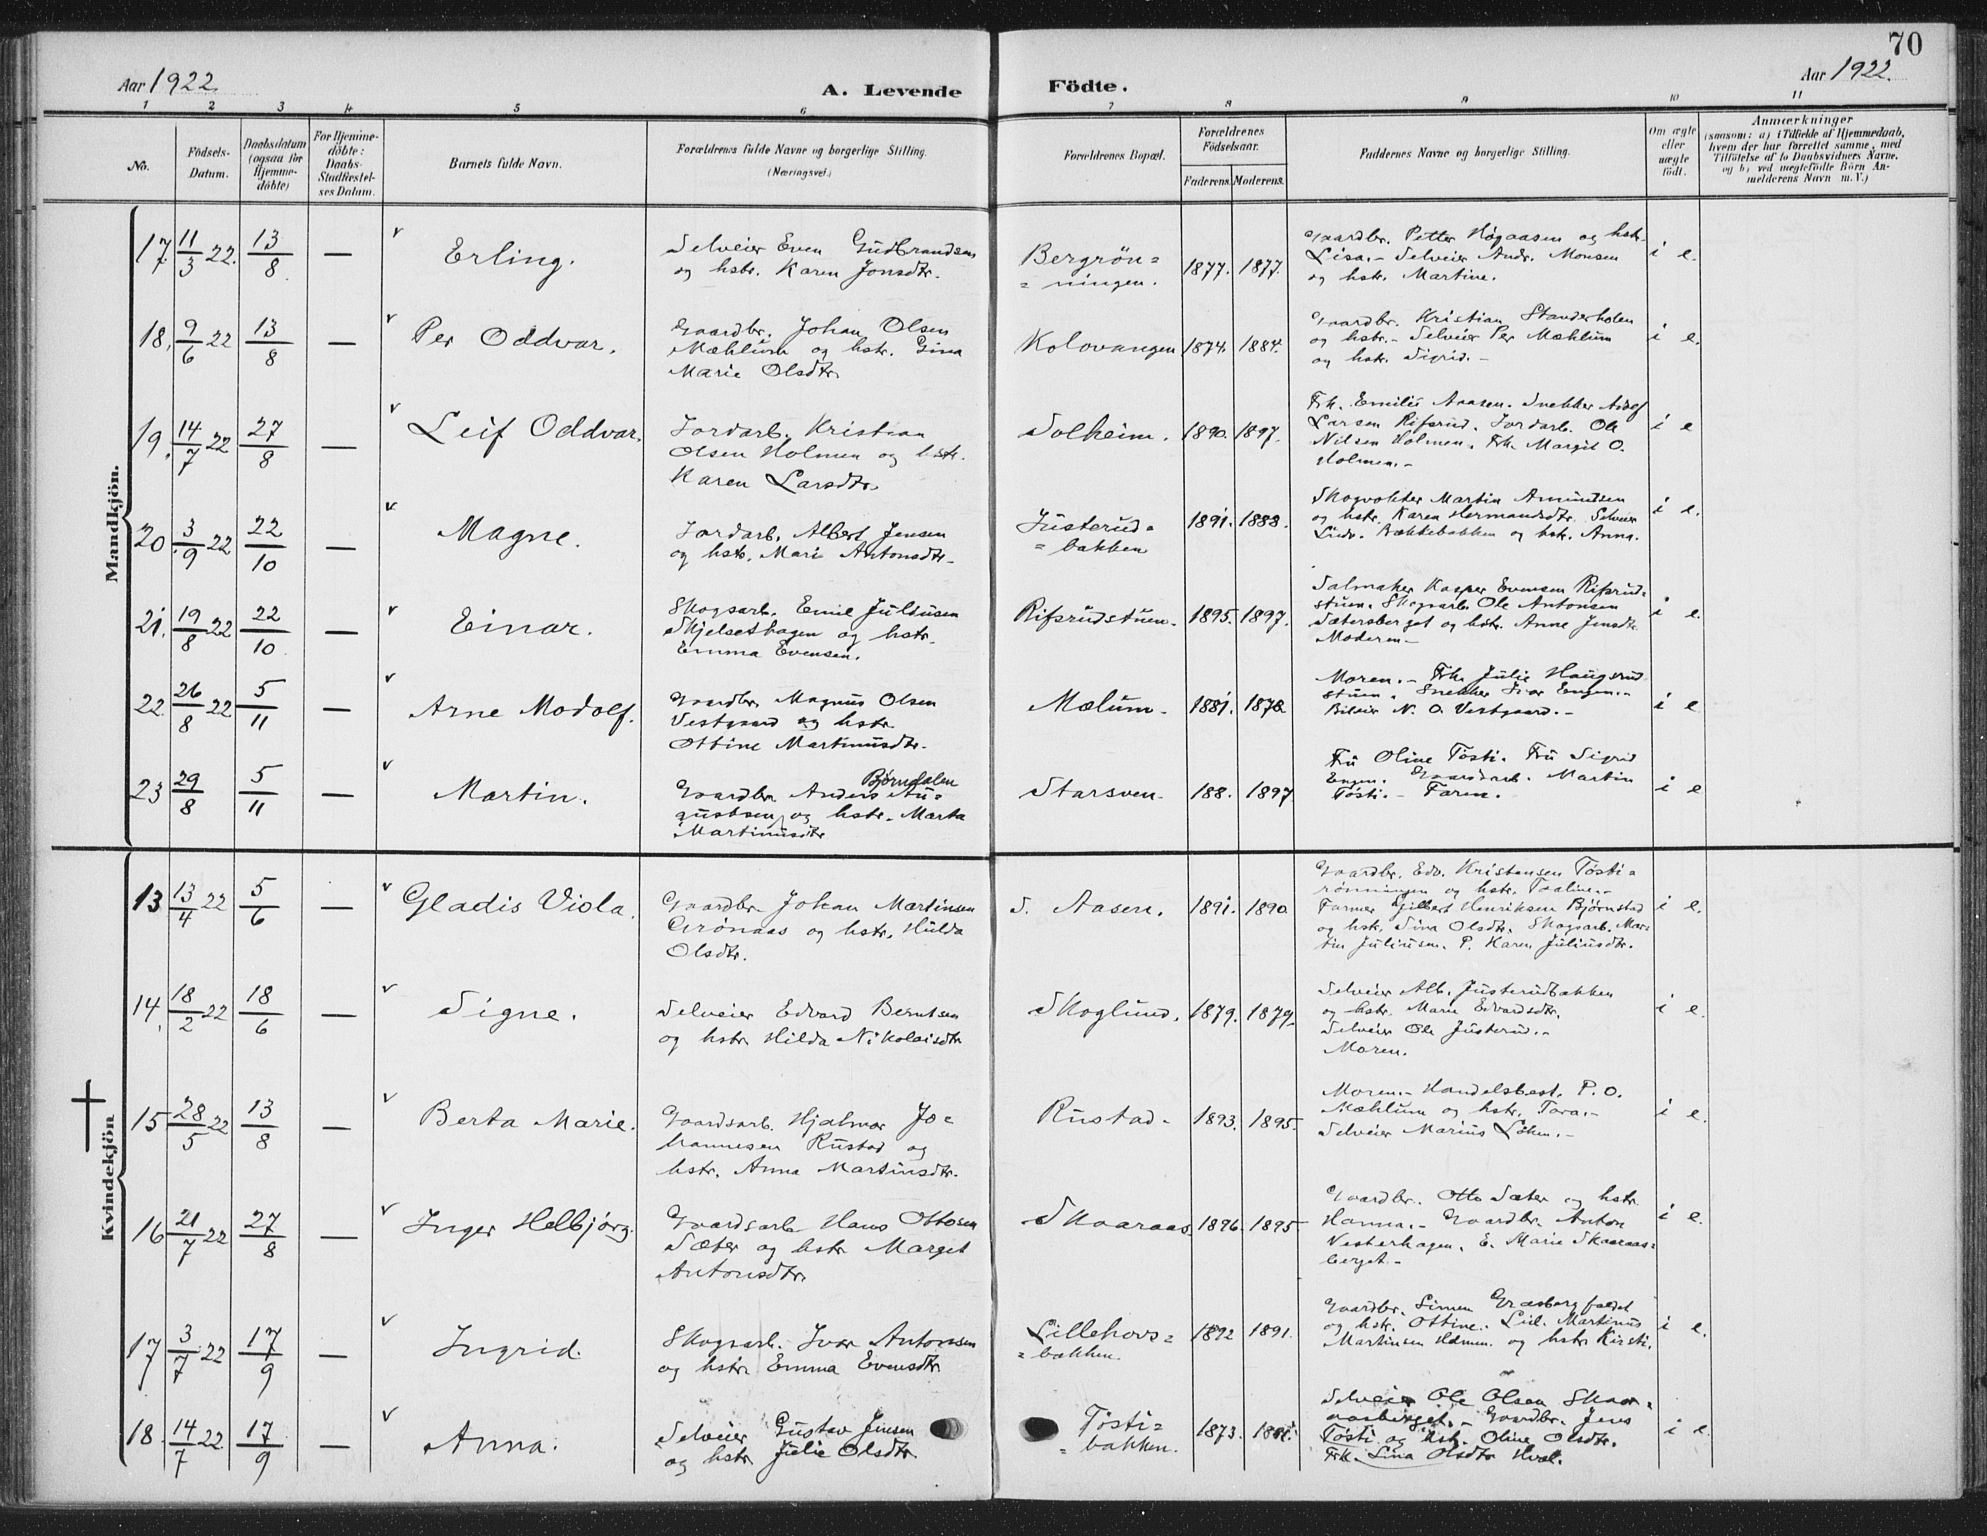 70
Aar 1922
A. Levende
Födte.
Aar 1922.
1 2 3 4 5 6 7 8 9 10 11
No.
Födsels-
Datum.
Daabsdatum
(ogsaa for
Hjemme-
döbte)
For Hjemme-
döbte:
Daabs-
Stadfæstel-
ses Datum.
Barnets fulde Navn.
Forældrenes fulde Navne og borgerlige Stilling.
(Næringsvei.)
Forældrenes Bopæl.
Forældrenes
Födselsaar.
Faderens. Moderens.
Faddernes Navne og borgerlige Stilling.
Om ægte
eller
uægte
födt.
Anmærkninger
(saasom: a) i Tilfælde af Hjemmedaab,
hvem der har forrettet samme, med
Tilföielse af to Daabsvidners Navne.
og b, ved uægteföditte Börn An-
melderens Navn m. V.)
Mandkjön.
17. 11/3 22. 13/8 — v Erling.
Selveier Even Gudbrandsen
og hstr. Karen Jonsdtr.
Bergrön=
=ningen.
1877. 1877.
Gaardbr. Petter Högaasen og hstr.
Lisa. - Selveier Andr. Monsen
og hstr. Martine.
i e.
18. 9/6 22 13/8 — v Per Oddvar.
Gaardbr. Johan Olsen
Mæhlum og hstr. Gina
Marie Olsdtr.
Kolovangen
1874. 1884.
Gaardbr. Kristian Standerholen
og hstr. - Selveier Per Mæhlum
og hstr. Sigrid. -
i e.
19. 14/7 22 27/8 — v Leif Oddvar.
Jordarb. Kristian
Olsen Holmen og hstr.
Karen Larsdtr.
Solheim.
1890. 1897.
Frk. Emilie Aaasen. Snekker Adolf
Larsen Rifsrud. Jordarb. Ole
Nilsen Holmen. Frk. Margit O.
Holmen. -
i e
20 3/9 22 22/10 — v Magne.
Jordarb. Albert Jensen
og hstr. Mari Antonsdtr.
Justerud=
=bakken
1891. 1888.
Skogvokter Martin Amundsen
og hstr. Karen Hermandsdtr. Selveier
Ludv. Bækkebakken og hstr. Anna.
i e.
21. 19/8 22 22/10 — v Einar.
Skogsarb. Emil Juliusen
Skjelsethagen og hstr.
Emma Evensen.
Rifsrudstuen.
1895. 1897.
Salmaker Kasper Evensen Rifsrud=
stuen. Skogsarb. Ole Antonsen
Sætersberget og hstr. Anne Jensdtr.
Moderen -
i e.
22 26/8 22 5/11 — v Arne Modolf.
Gaardbr. Magnus Olsen
Vestgaard og hstr.
Ottine Martinusdtr.
Mælum.
1881. 1878
Moren. - Frk. Julie Haugsrud
stuen. Snekker Ivar Engen. -
Bileier N. O. Vestgaard. -
i e
23 29/8 5/11 — v Martin.
Bjørndalen
Gaardbr. Anders Au=
gustsen og hstr. Marta
Martinusdtr
Starsven.
188. 1897
Fru Oline Tösti. Fru Sigrid
Engen. Gaardarb. Martin
Tösti. - Faren.
i e
Kvindekjön
13 13/4 22 5/6 — v Gladis Viola.
Gaardbr. Johan Martinsen
Grönaas og hstr. Hulda
Olsdtr.
S. Aasen.
1891. 1890
Gaardbr. Edv. Kristansen Tösti=
rönningen og hstr. Paaline. -
Farmer Gilbert Henriksen Bjørnstad
og hstr. Sina Olsdtr. Skogsarb. Mar=
tin Juliusen. P. Karen Juliusdtr.
i e.
14. 18/2 22 18/6 — v Signe.
Selveier Edvard Berntsen
og hstr. Hilda Nikolaisdtr
Skoglund.
1879. 1879.
Selveier Alb. Justerudbakken
og hstr. Marie Edvardsdtr.
Selveier Ole Justerud. -
Moren.
i e.
15 28/5 22 13/8 — v Berta Marie.
Gaardsarb. Hjalmar Jo=
hannesen Rustad og
hstr. Anna Martinsdtr.
Rustad.
1893. 1895.
Moren. - Handelsbest. P. O.
Mæhlum og hstr. Tora. -
Selveier Marius Löhn. -
i e.
16 21/7 22 27/8 — v Inger Helbjörg.
Gaardsarb. Hans Ottosen
Sæter og hstr. Marget
Antonsdtr.
Skaaraas.
1896. 1895
Gaardbr. Otto Sæter og hstr.
Hanna. - Gaardbr. Anton
Vesterhagen. E. Marie Skaaraas=
berget -
i e.
17 3/7 22 17/9 — v Ingrid.
Skogsarb. Ivar Antonsen
og hstr. Emma Evensdtr
Lillehovs=
=bakken.
1892 1891.
Gaardbr. Simen Græsbergfeldet
og hstr. Ottine. Martinus
Martinsen og hstr. Kirsti.
i e.
18. 14/7 22. 17/9 — v Anna.
Selveier Gustav Jensen
og hstr. Julie Olsdtr.
Tösti=
=bakken.
1873.
Selveier Ole Olsen Skaar=
aasberget. - Gaardbr. Jens
Tösti og hstr. Oline Olsdtr.
Frk. Lina Olsdtr Hval.
i e.